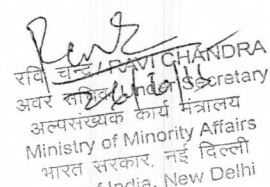 रवि चन्द्र / RAVI CHANDRA
अवर सचिव / Under Secretary
अल्पसंख्यक कार्य मंत्रालय
Ministry of Minority Affairs
भारत सरकार, नई दिल्ली
of India, New Delhi